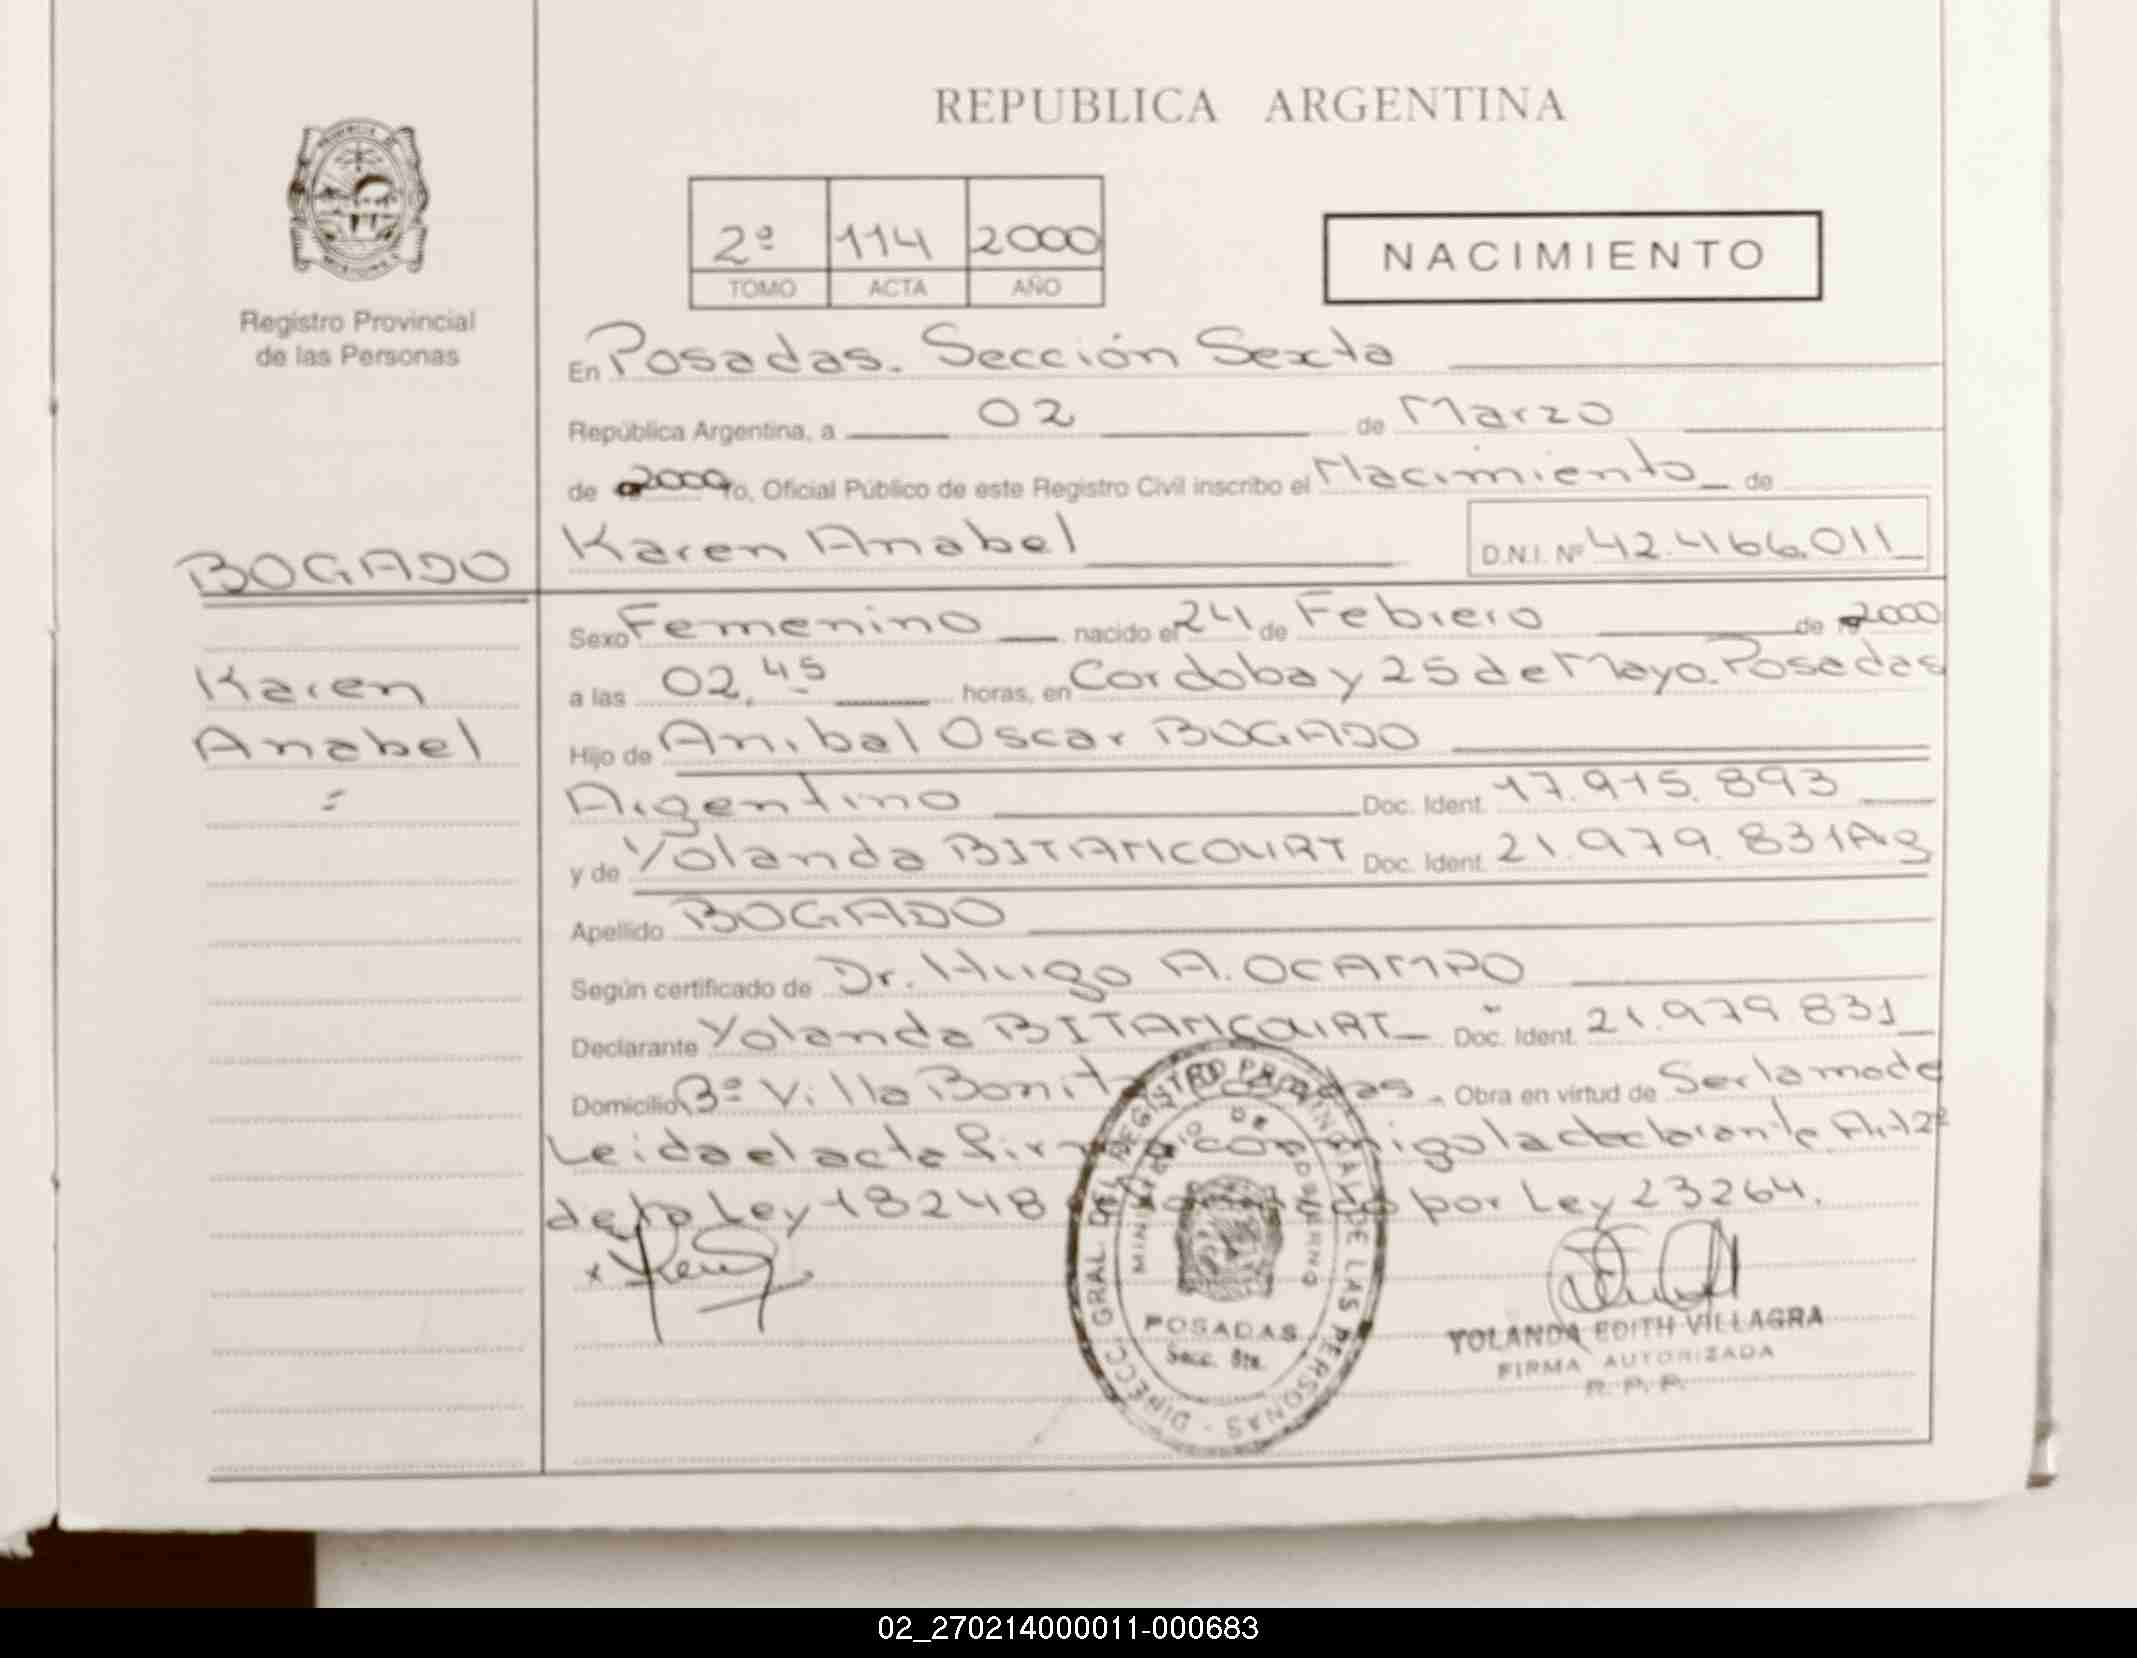 REPUBLICA ARGENTINA
Registro Provincial
de las Personas
2º 114 2000
TOMO ACTA AÑO
NACIMIENTO
En Posadas. Sección Sexta
República Argentina, a 02 de Marzo
de 2000 Yo, Oficial Público de este Registro Civil inscribo el Nacimiento de
BOGADO
Karen
Anabel
Karen Anabel D.N.I. Nº 42.466.011
Sexo Femenino nacido el 24 de Febrero de 2000
a las 02,45 horas, en Cordoba y 25 de Mayo. Posadas
Hijo de Anibal Oscar BOGADO
Argentino Doc. Ident. 17.915.893
y de Yolanda BITANCOURT Doc. Ident. 21.979.831 Arg
Apellido BOGADO
Según certificado de Dr. Hugo A. OCAMPO
Declarante Yolanda BITANCOURT Doc. Ident. 21.979.831
Domicilio Bº Villa Bonita Obra en virtud de Ser la madre
Leida el acta firma conmigo la declarante. Art 2º
de la Ley 18248 por Ley 23264.
DIRECC. GRAL. DEL REGISTRO PROVINCIAL DE LAS PERSONAS
MINISTERIO DE GOBIERNO
POSADAS
Secc. 6ta.
YOLANDA EDITH VILLAGRA
FIRMA AUTORIZADA
R. P. P.
02_270214000011-000683